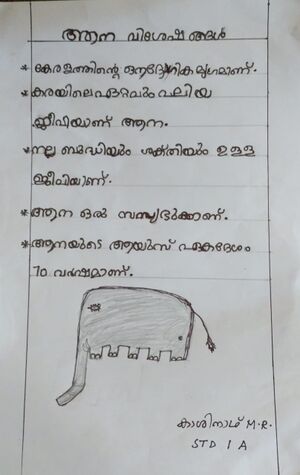 ആന വിശേഷങ്ങൾ
* കേരളത്തിന്റെ ഔദ്യോഗിക മൃഗമാണ്.
* കരയിലെ ഏറ്റവും വലിയ
ജീവിയാണ് ആന.
* നല്ല ബുദ്ധിയും ശക്തിയും ഉള്ള
ജീവിയാണ്.
* ആന ഒരു സസ്യഭുക്കാണ്.
* ആനയുടെ ആയുസ് ഏകദേശം
70 വർഷമാണ്.
കാശിനാഥ് M.R.
STD I A